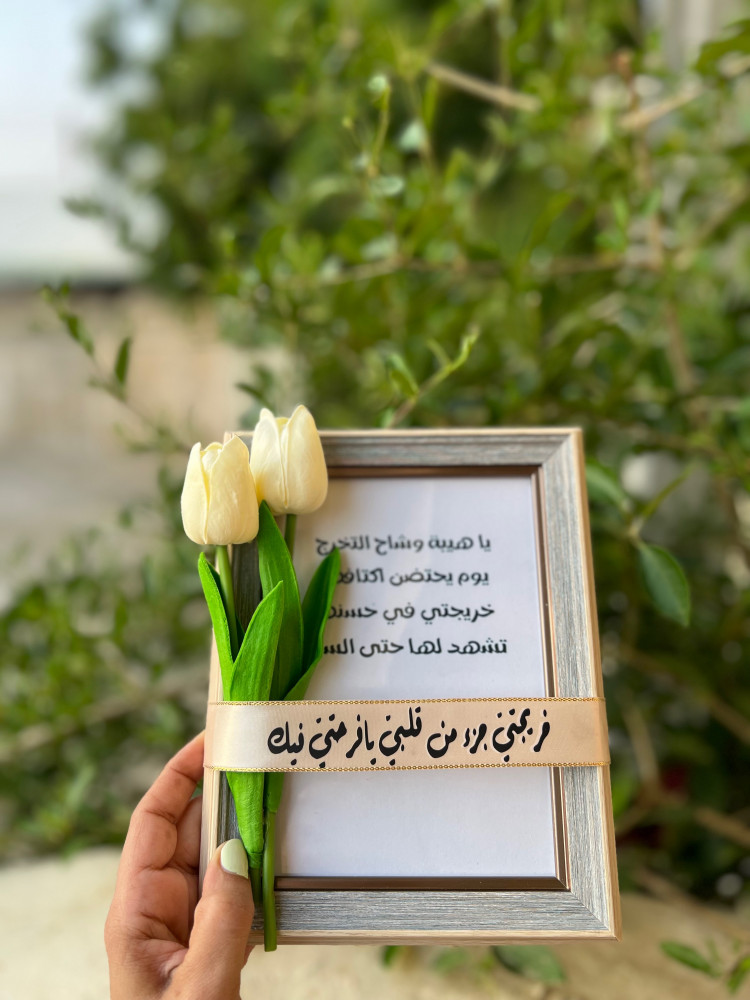 يا هيبة وشاح التخرج
يوم يحتضن اكتافـ
خريجتي في حسنـ
تشهد لها حتى السـ
فرحتي جزء من قلبي يافرحتي فيك